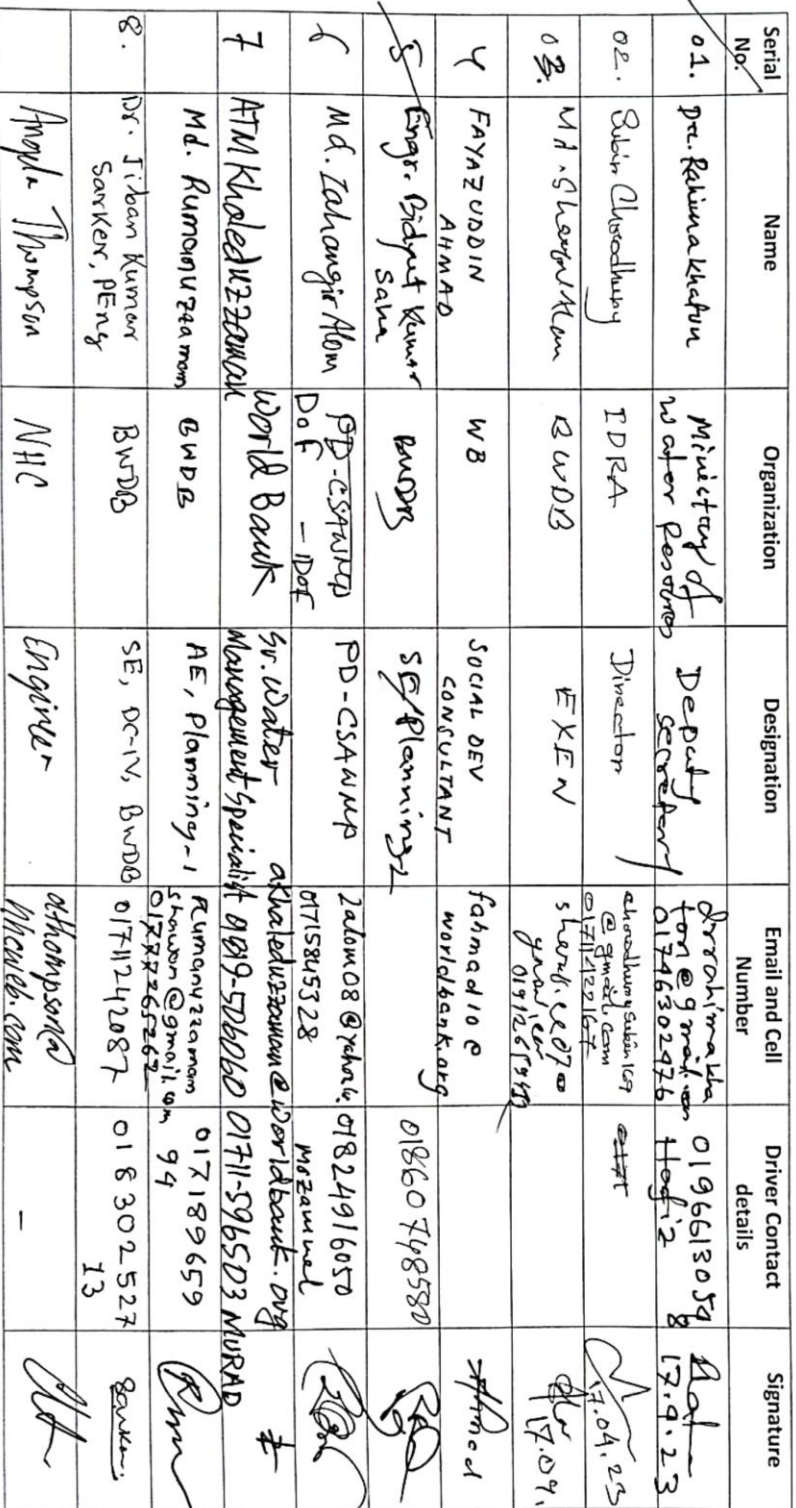 Serial No. Name Organization Designation Email and Cell Number Driver Contact details Signature
01. Dr. Rahima Khatun Ministry of Water Resources Deputy Secretary drrahimakhaton@gmail.com 01746302976 01966130598 Hafiz 17.4.23
02. Subir Chowdhury IDRA Director chowdhurysubir169@gmail.com 01711422167 17.04.23
03. BWDB EXEN 17.04.
4 FAYAZUDDIN AHMAD WB SOCIAL DEV CONSULTANT fahmad10@worldbank.org Ahmed
5 Engr. Bidyut Kumar Saha BWDB SE/Planning 01860748580
6 Md. Zahangir Alom PD-CSAWMP DoF - DoF PD-CSAWMP Zalom08@yahoo. 01715845328 01824916050 Mozammel
7 ATM Khaleduzzaman World Bank Sr. Water Management Specialist akhaleduzzaman@worldbank.org 01819-506060 01711-596503 MURAD
Md. Rumanuzzaman BWDB AE, Planning-1 Rumanuzzamanshawon@gmail.com 01777265262 01718965994
8. Dr. Jiban Kumar Sarker, PEng BWDB SE, DC-IV, BWDB 01711242087 01830252713 Sarker.
Angela Thompson NHC Engineer athompson@nhcweb.com -